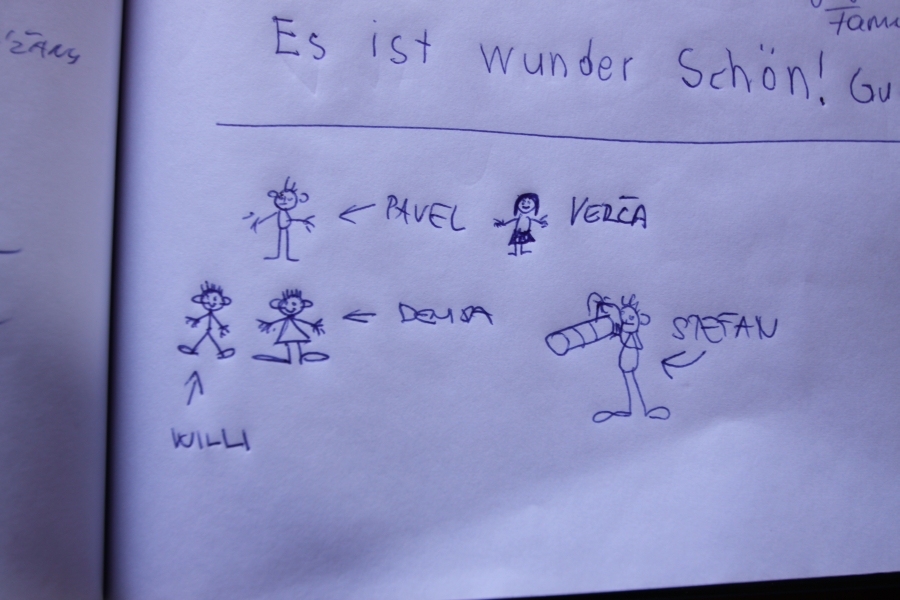 Es ist wunder Schön! Gu
PAVEL
VERČA
DENISA
STEFAN
WILLI